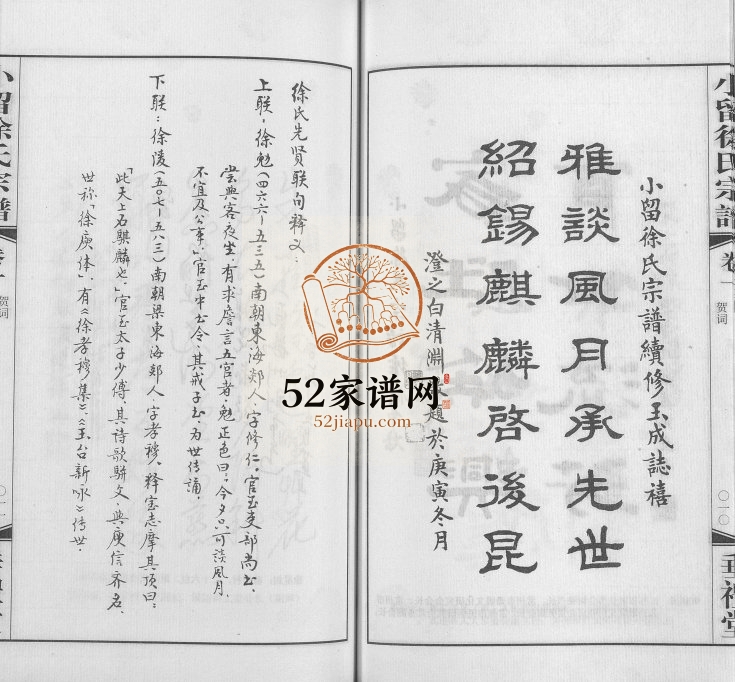 小留徐氏宗譜續修玉成誌禧
雅談風月承先世
紹錫麒麟啓後昆
澄之白清淵
題於庚寅冬月
小留徐氏宗譜
卷一
贺词
〇一〇
徐氏先贤联句释义：
上联：徐勉(四六六-五三五)南朝東海郯人，字修仁。官至吏部尚书，
尝與客夜坐，有求詹言五官者，勉正色曰："今夕只可談風月，
不宜及公事"，官至中书令，其戒子书，为世传誦。
下联：徐陵(五〇七-五八三)南朝梁東海郯人，字孝穆，释宝志摩其顶曰：
"此天上石騏麟也"，官至太子少傅，其诗歌駢文，與庾信齐名，
世称"徐庾体"，有《徐孝穆集》、《玉台新咏》传世。
小留徐氏宗譜
贺词
52家谱网
52jiapu.com